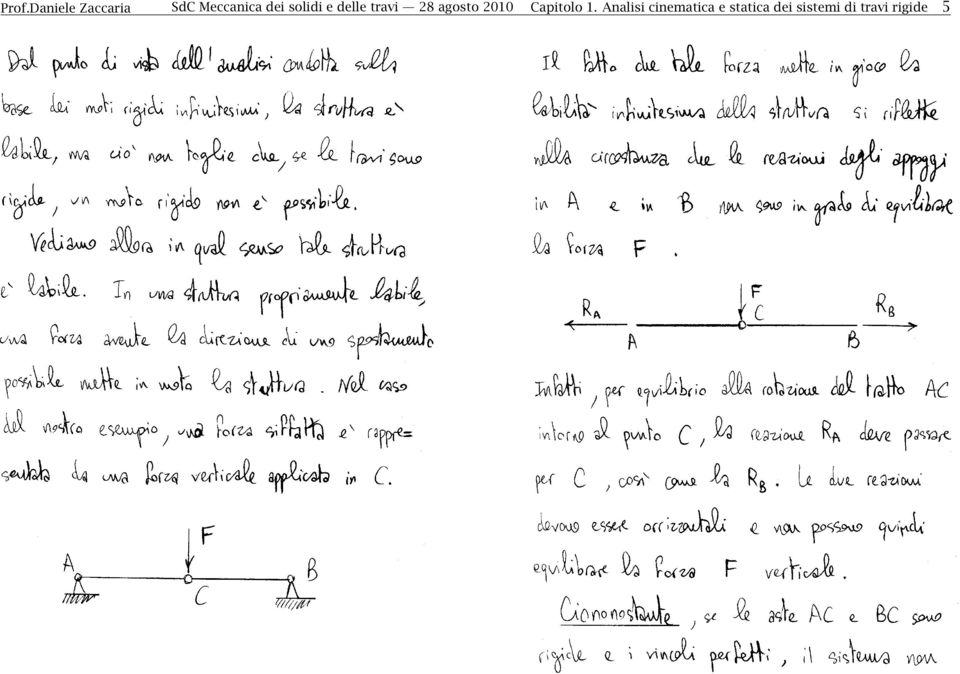 Prof.Daniele Zaccaria SdC Meccanica dei solidi e delle travi — 28 agosto 2010 Capitolo 1. Analisi cinematica e statica dei sistemi di travi rigide 5
Dal punto di vista dell'analisi condotta sulla
base dei moti rigidi infinitesimi, la struttura e`
labile, ma cio` non toglie che, se le travi sono
rigide, un moto rigido non e` possibile.
Vediamo allora in qual senso tale struttura
e` labile. In una struttura propriamente labile,
una forza avente la direzione di uno spostamento
possibile mette in moto la struttura. Nel caso
del nostro esempio, una forza siffatta e` rappre=
sentata da una forza verticale applicata in C.
F
A
B
C
Il fatto che tale forza mette in gioco la
labilita` infinitesima della struttura si riflette
nella circostanza che le reazioni degli appoggi
in A e in B non sono in grado di equilibrare
la forza F.
F
RA C RB
A B
Infatti, per equilibrio alla rotazione del tratto AC
intorno al punto C, la reazione RA deve passare
per C, cosi` come la RB. Le due reazioni
devono essere orrizzontali e non possono quindi
equilibrare la forza F verticale.
Ciononostante, se le aste AC e BC sono
rigide e i vincoli perfetti, il sistema non